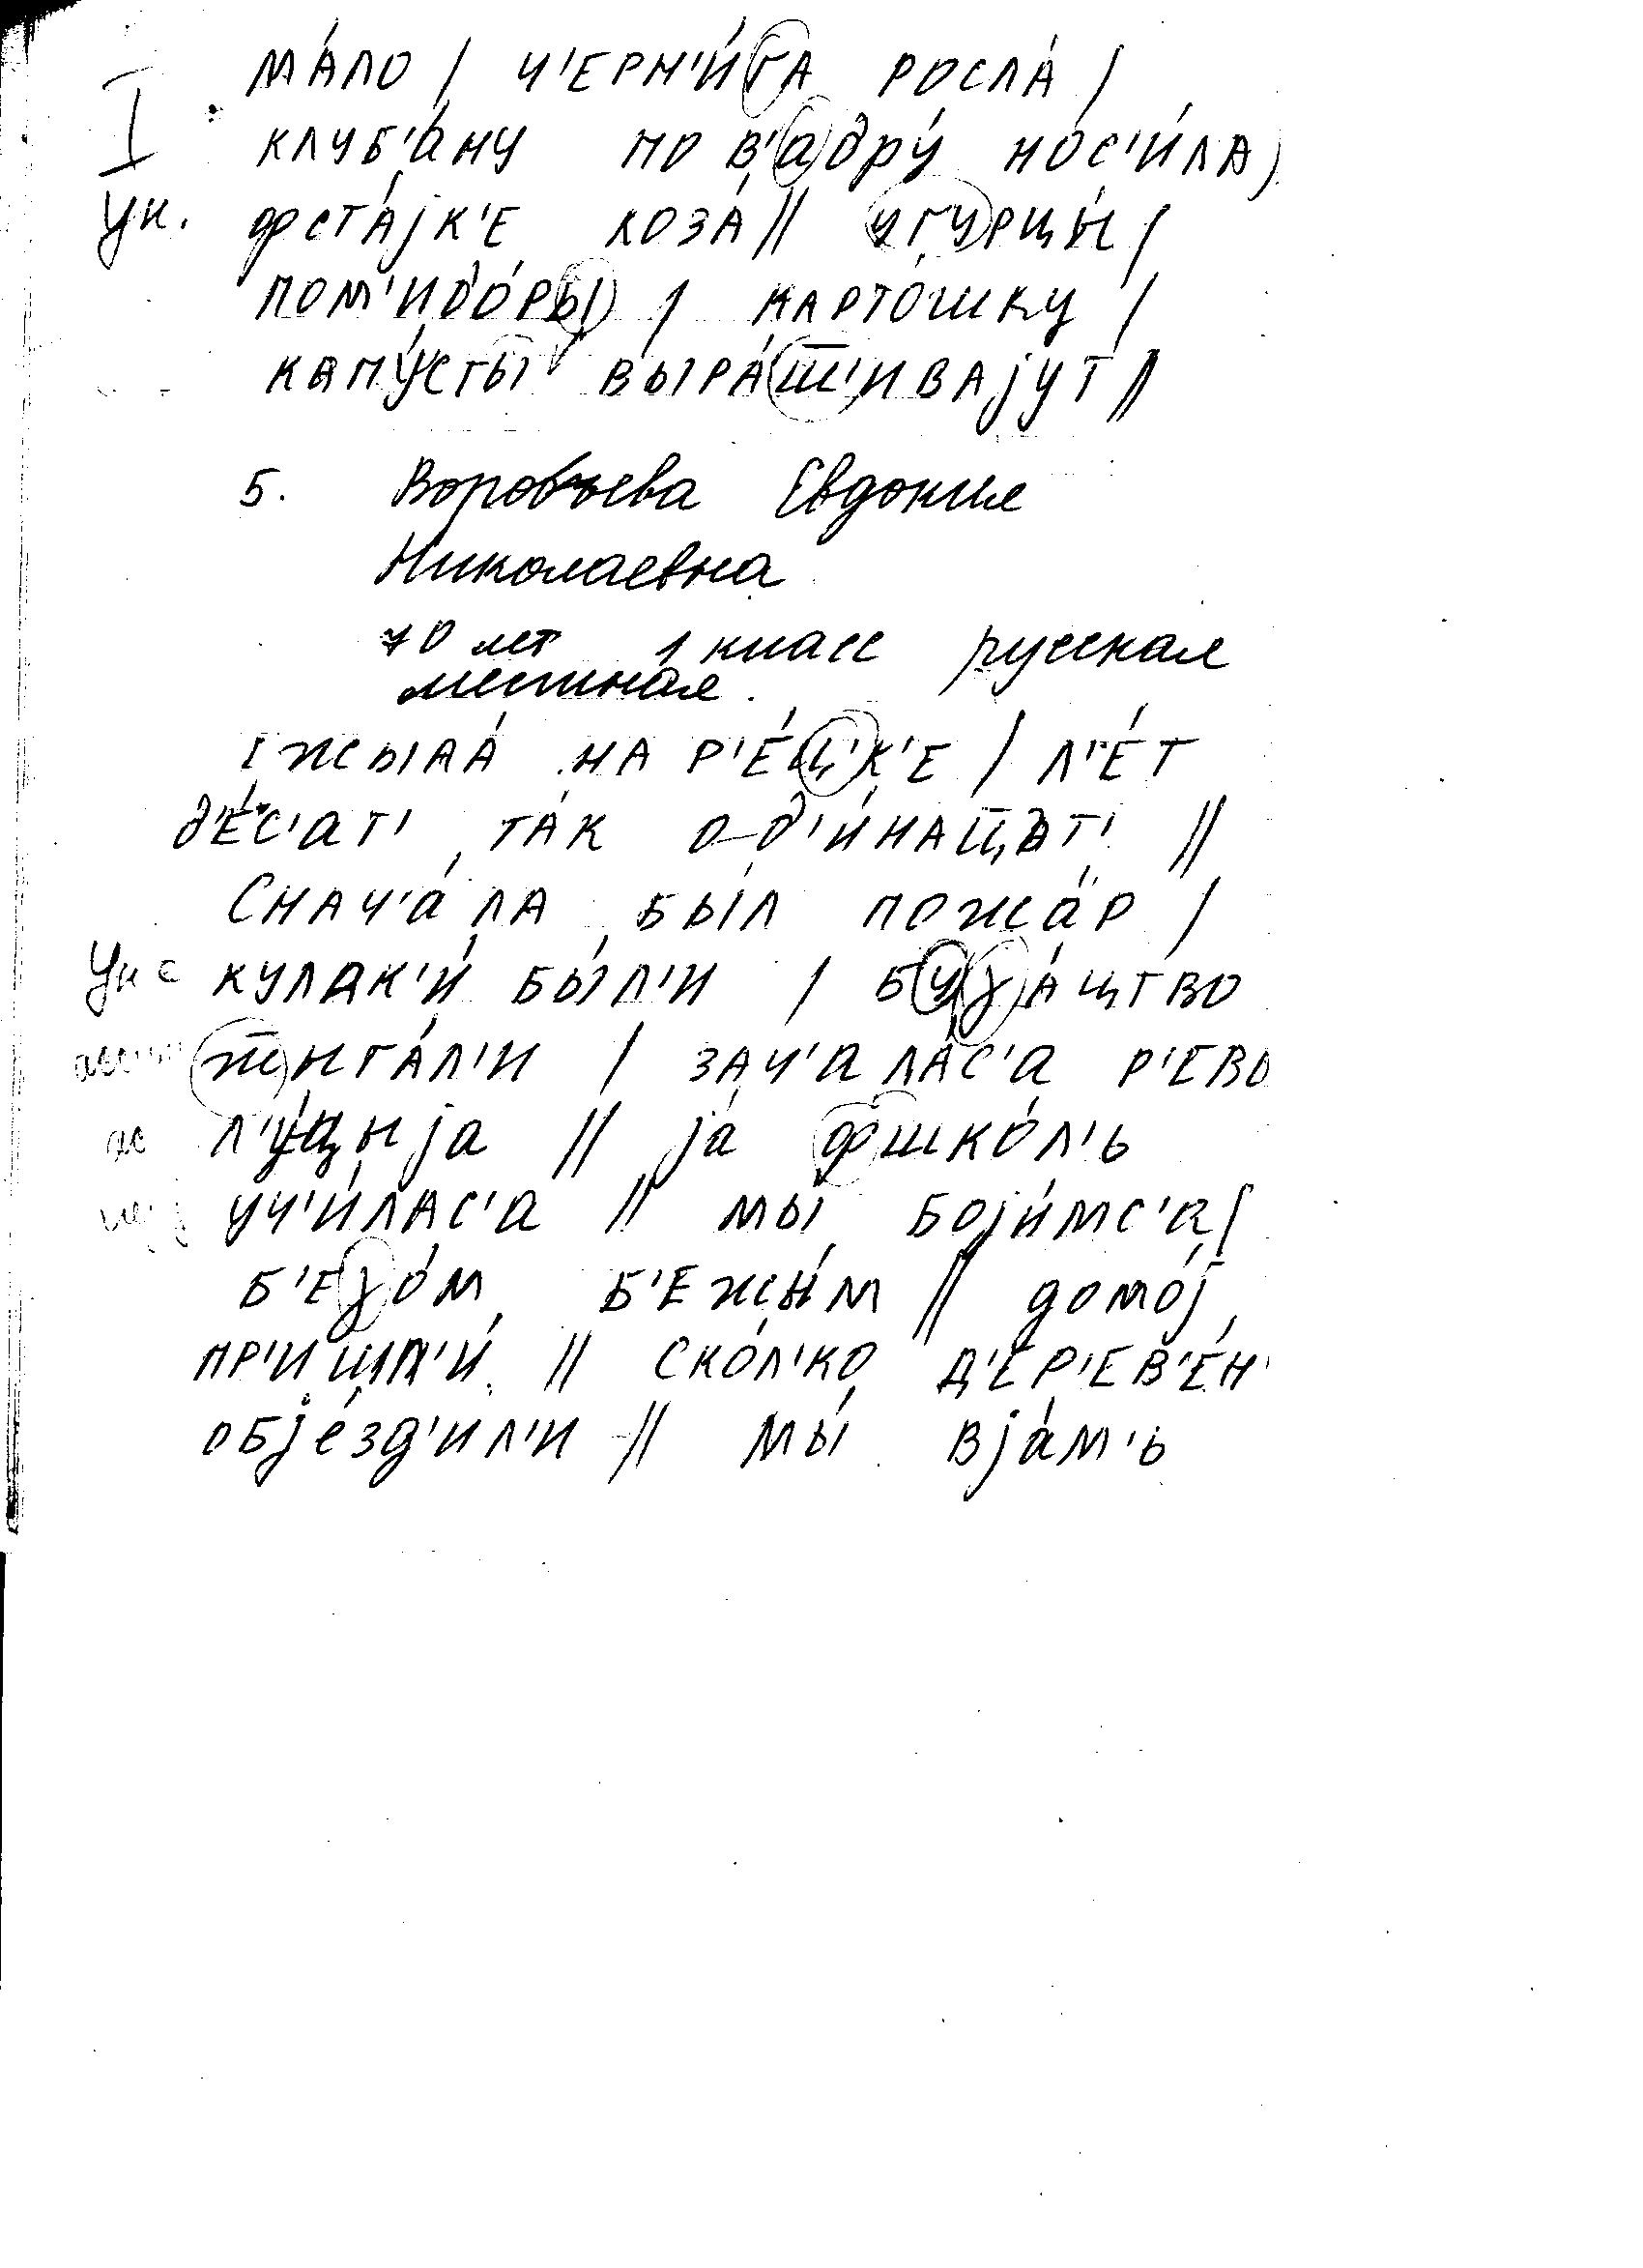 МА́ЛО / Ч'ЕРН'И́ГА РОСЛА́ /
I КЛУБ'А́НУ ПО В'АДРУ́ НОС'И́ЛА)
Ук. ФСТА́JК'Е КОЗА́ // УГУРЦЫ́ /
ПОМ'ИДО́РЫ / КАРТО́ШКУ /
КАПУ́СТЫ ВЫРА́Ш̅'ИВАJУТ //
5. Воробьева Евдокия
Николаевна
70 лет 1 класс русская
местная.
ЖЫЛА́ НА Р'Е́Ц'К'Е / Л'Е́Т
Д'Е́С'АТ' ТА́К ОД'И́НАЦ̅АТ' //
СНАЧ'А́ЛА БЫ́Л ПОЖА́Р /
Ук КУЛАК'И́ БЫ́Л'И / БУɣА́ЦТВО
Ж̅ЫГА́Л'И / ЗАЧ'АЛА́С'А Р'ЕВО
ас Л'У́ЦЫJА // JА́ ФШКО́Л'Ь
УЧ'И́ЛАС'А // МЫ́ БОJИ́МС'А /
Б'ЕɣО́М Б'ЕЖЫ́М // ДОМО́J
ПР'ИШЛ'И́ // СКО́Л'КО Д'ЕР'ЕВ'Е́Н'
ОБJЕ́ЗД'ИЛ'И // МЫ́ ВJА́М'Ь